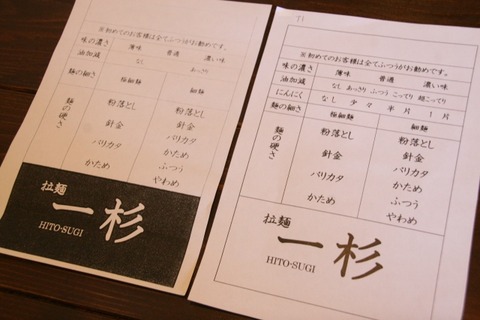 ※初めてのお客様は全てふつうがお勧めです。
味の濃さ 薄味 普通 濃い味
油加減 なし あっさり
麺の細さ 極細麺
麺の硬さ
粉落とし 粉落とし
針金 針金
バリカタ バリカタ
かため かため
ふつう
やわめ
拉麺
一杉
HITO-SUGI
T1
※初めてのお客様は全てふつうがお勧めです。
味の濃さ 薄味 普通 濃い味
油加減 なし あっさり ふつう こってり 超こってり
にんにく なし 少々 半片 1片
麺の細さ 極細麺 細麺
麺の硬さ
粉落とし 粉落とし
針金 針金
バリカタ バリカタ
かため かため
ふつう
やわめ
拉麺
一杉
HITO-SUGI